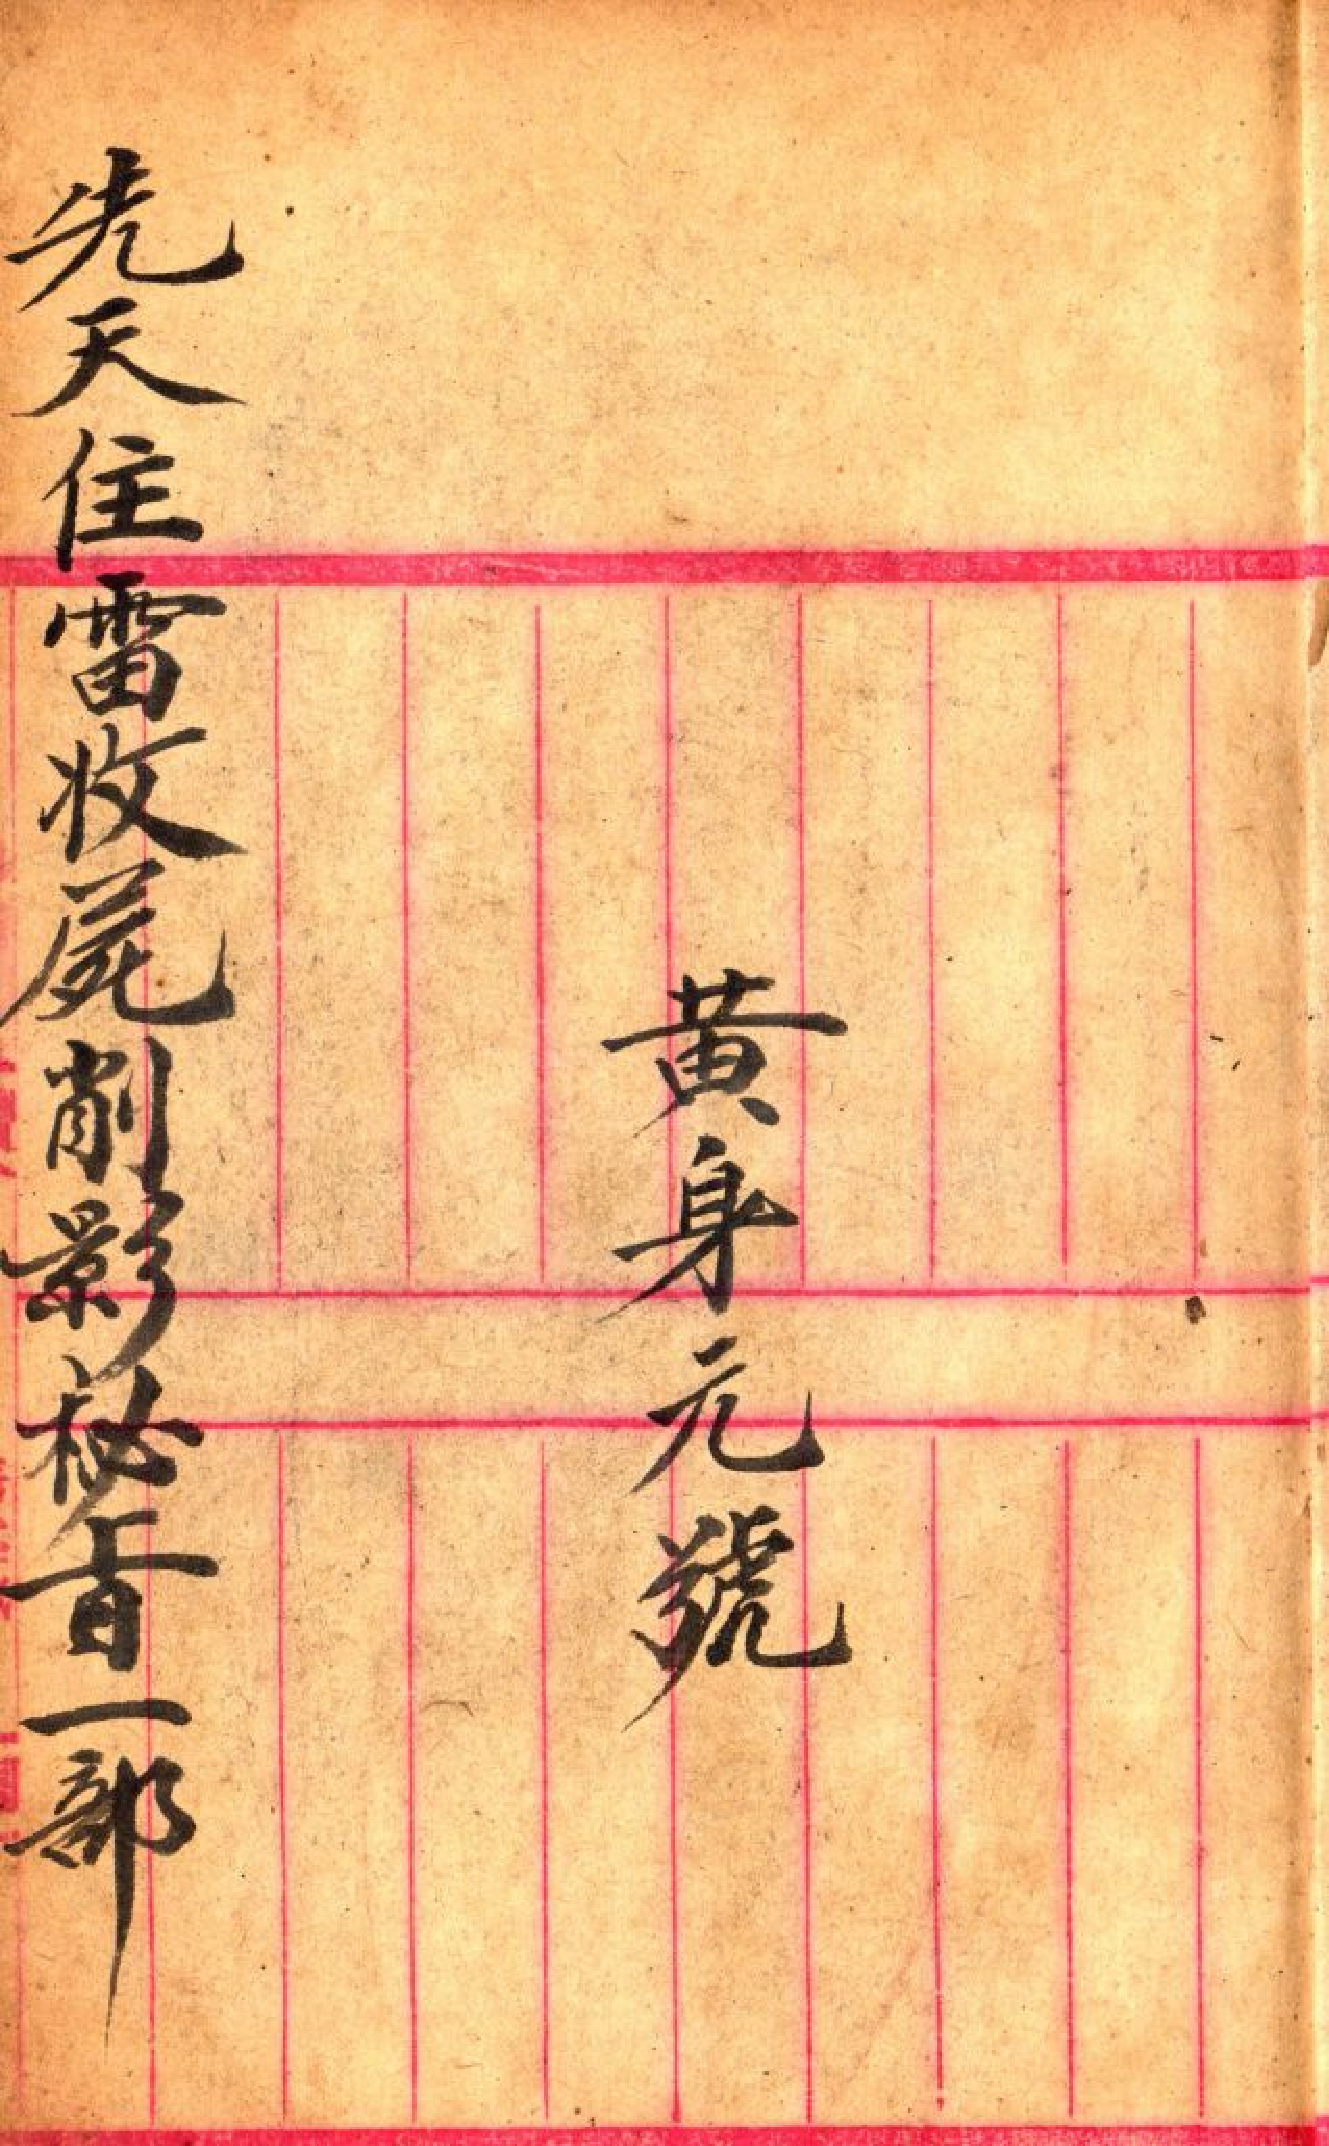 黄身元號
先天住雷收屍削影秘旨一部